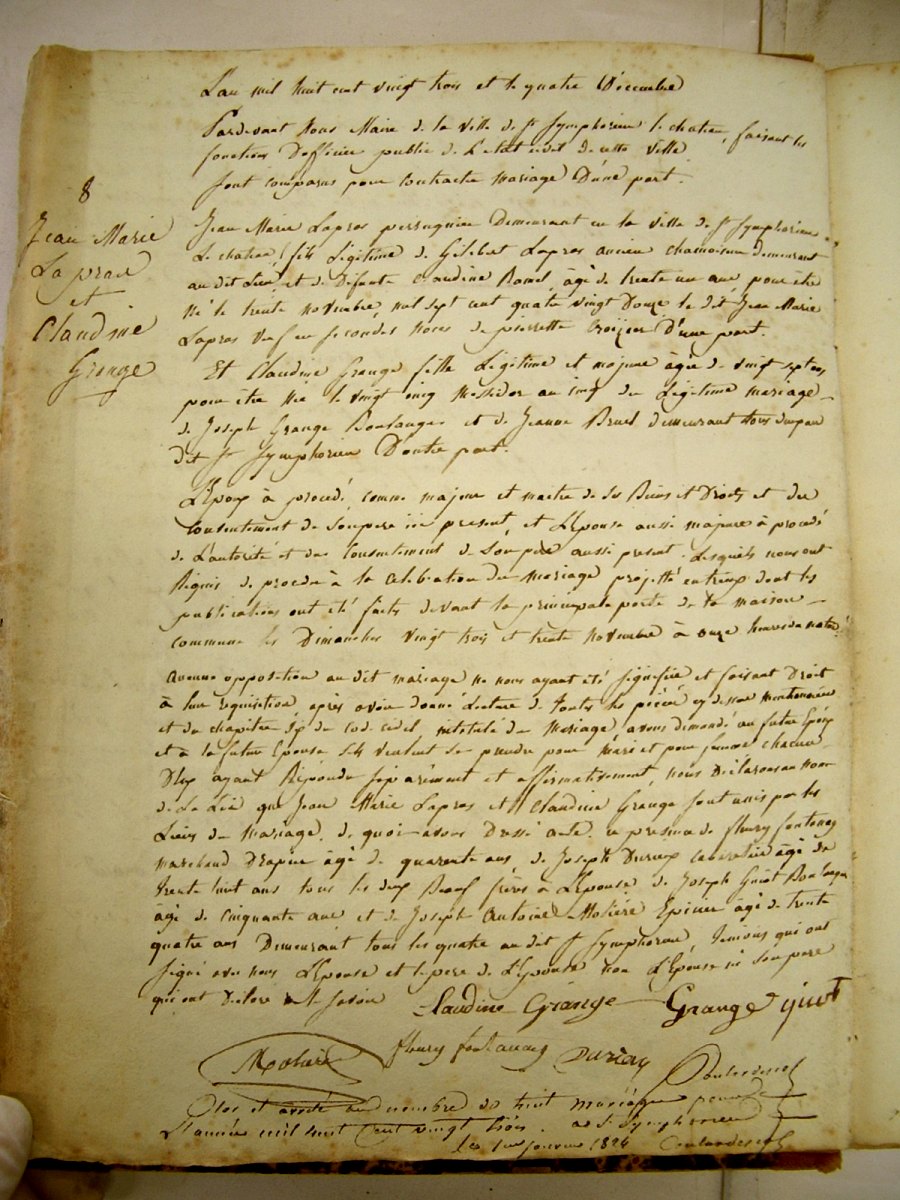 L'an mil huit cent vingt trois et le quatre Décembre
Pardevant Nous Maire de la ville de St Symphorien le chateau, faisant les
fonctions D'officier public de L'etat civil de cette ville
sont comparus pour contracter mariage D'une part.
8
Jean Marie
Lapras
et
Claudine
Grange
Jean Marie Lapras perruquier Demeurant en la ville de St Symphorien
Le chateau, fils Légitime de Gilibert Lapras ancien chamoiseur demeurant
au dit Lieu, et de Défunte Claudine agé de trente un ans, pour être
Né le trente novembre, mil sept cent quatre vingt Douze le dit Jean Marie
Lapras veuf en secondes noces de pierrette D'une part.
Et Claudine Grange fille Légitime et majeure âgée de vingt sept ans
pour être Née le vingt cinq Messidor an cinq du Légitime mariage
de Joseph Grange Boulanger et de Jeanne Bruel demeurant tous
dit St Symphorien D'autre part.
L'Epoux à procédé comme majeur et maitre de ses Biens et Droits et du
consentement de Son pere ici present, et L'Epouse aussi majeure à procédé
de L'autorité et du Consentement de Son père aussi present. Lesquels nous ont
Requis de procéder à la célébration du mariage projetté entr'eux dont les
publications ont été faites devant la principale porte de la maison
commune les Dimanches vingt trois et trente Novembre à onze heures du matin
aucune opposition au dit mariage ne nous ayant été signifiée et faisant Droit
à leur requisition, après avoir donné Lecture de toutes les pièces cy dessus mentionnées
et du chapitre du code civil, intitulé du Mariage, avons demandé au futur Epoux
et à la future Epouse s'ils veulent se prendre pour mari et pour femme chacun
D'eux ayant Répondu séparément et affirmativement, nous Déclarons au nom
de La Loi que Jean Marie Lapras et Claudine Grange sont unis par les
Liens du Mariage, de quoi avons Dressé acte en presence de fleury fontanay
marchand Drapier âgé de quarante ans de Joseph Durieux cabaretier âgé de
trente huit ans tous les deux Beaux frères à L'Epouse, de Joseph Guiot Boulanger
âgé de cinquante ans et de Joseph Antoine Molière Epicier âgé de trente
quatre ans Demeurant tous les quatre au dit St Symphorien, témoins qui ont
signé avec nous L'Epouse et le père de L'Epouse non L'Epoux ni Son pere
qui ont Déclaré ne le Savoir
Claudine Grange Grange guiot
Moliere fleury fontanay Duriau
Clos et arrêté au nombre de huit mariages pour
L'année mil huit cent vingt trois. à St Symphorien
le 1er janvier 1824